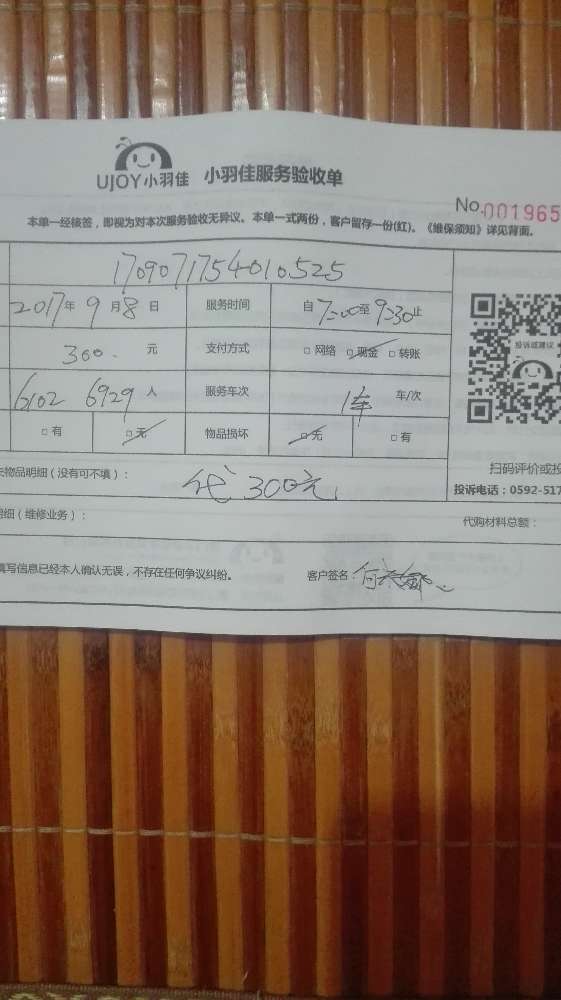 UJOY小羽佳 小羽佳服务验收单
No.001965
本单一经核签，即视为对本次服务验收无异议。本单一式两份，客户留存一份(红)。《维保须知》详见背面。
1709071754010525
2017年 9月8日 服务时间 自7:00至9:30止
300. 元 支付方式 □ 网络 □ 现金 □ 转账
6102 6929 人 服务车次 1车 车/次
□ 有 □ 无 物品损坏 □ 无 □ 有
投诉或建议
扫码评价或投
物品明细（没有可不填）： 代 300元
投诉电话：0592-517
明细（维修业务）： 代购材料总额：
填写信息已经本人确认无误，不存在任何争议纠纷。 客户签名：何